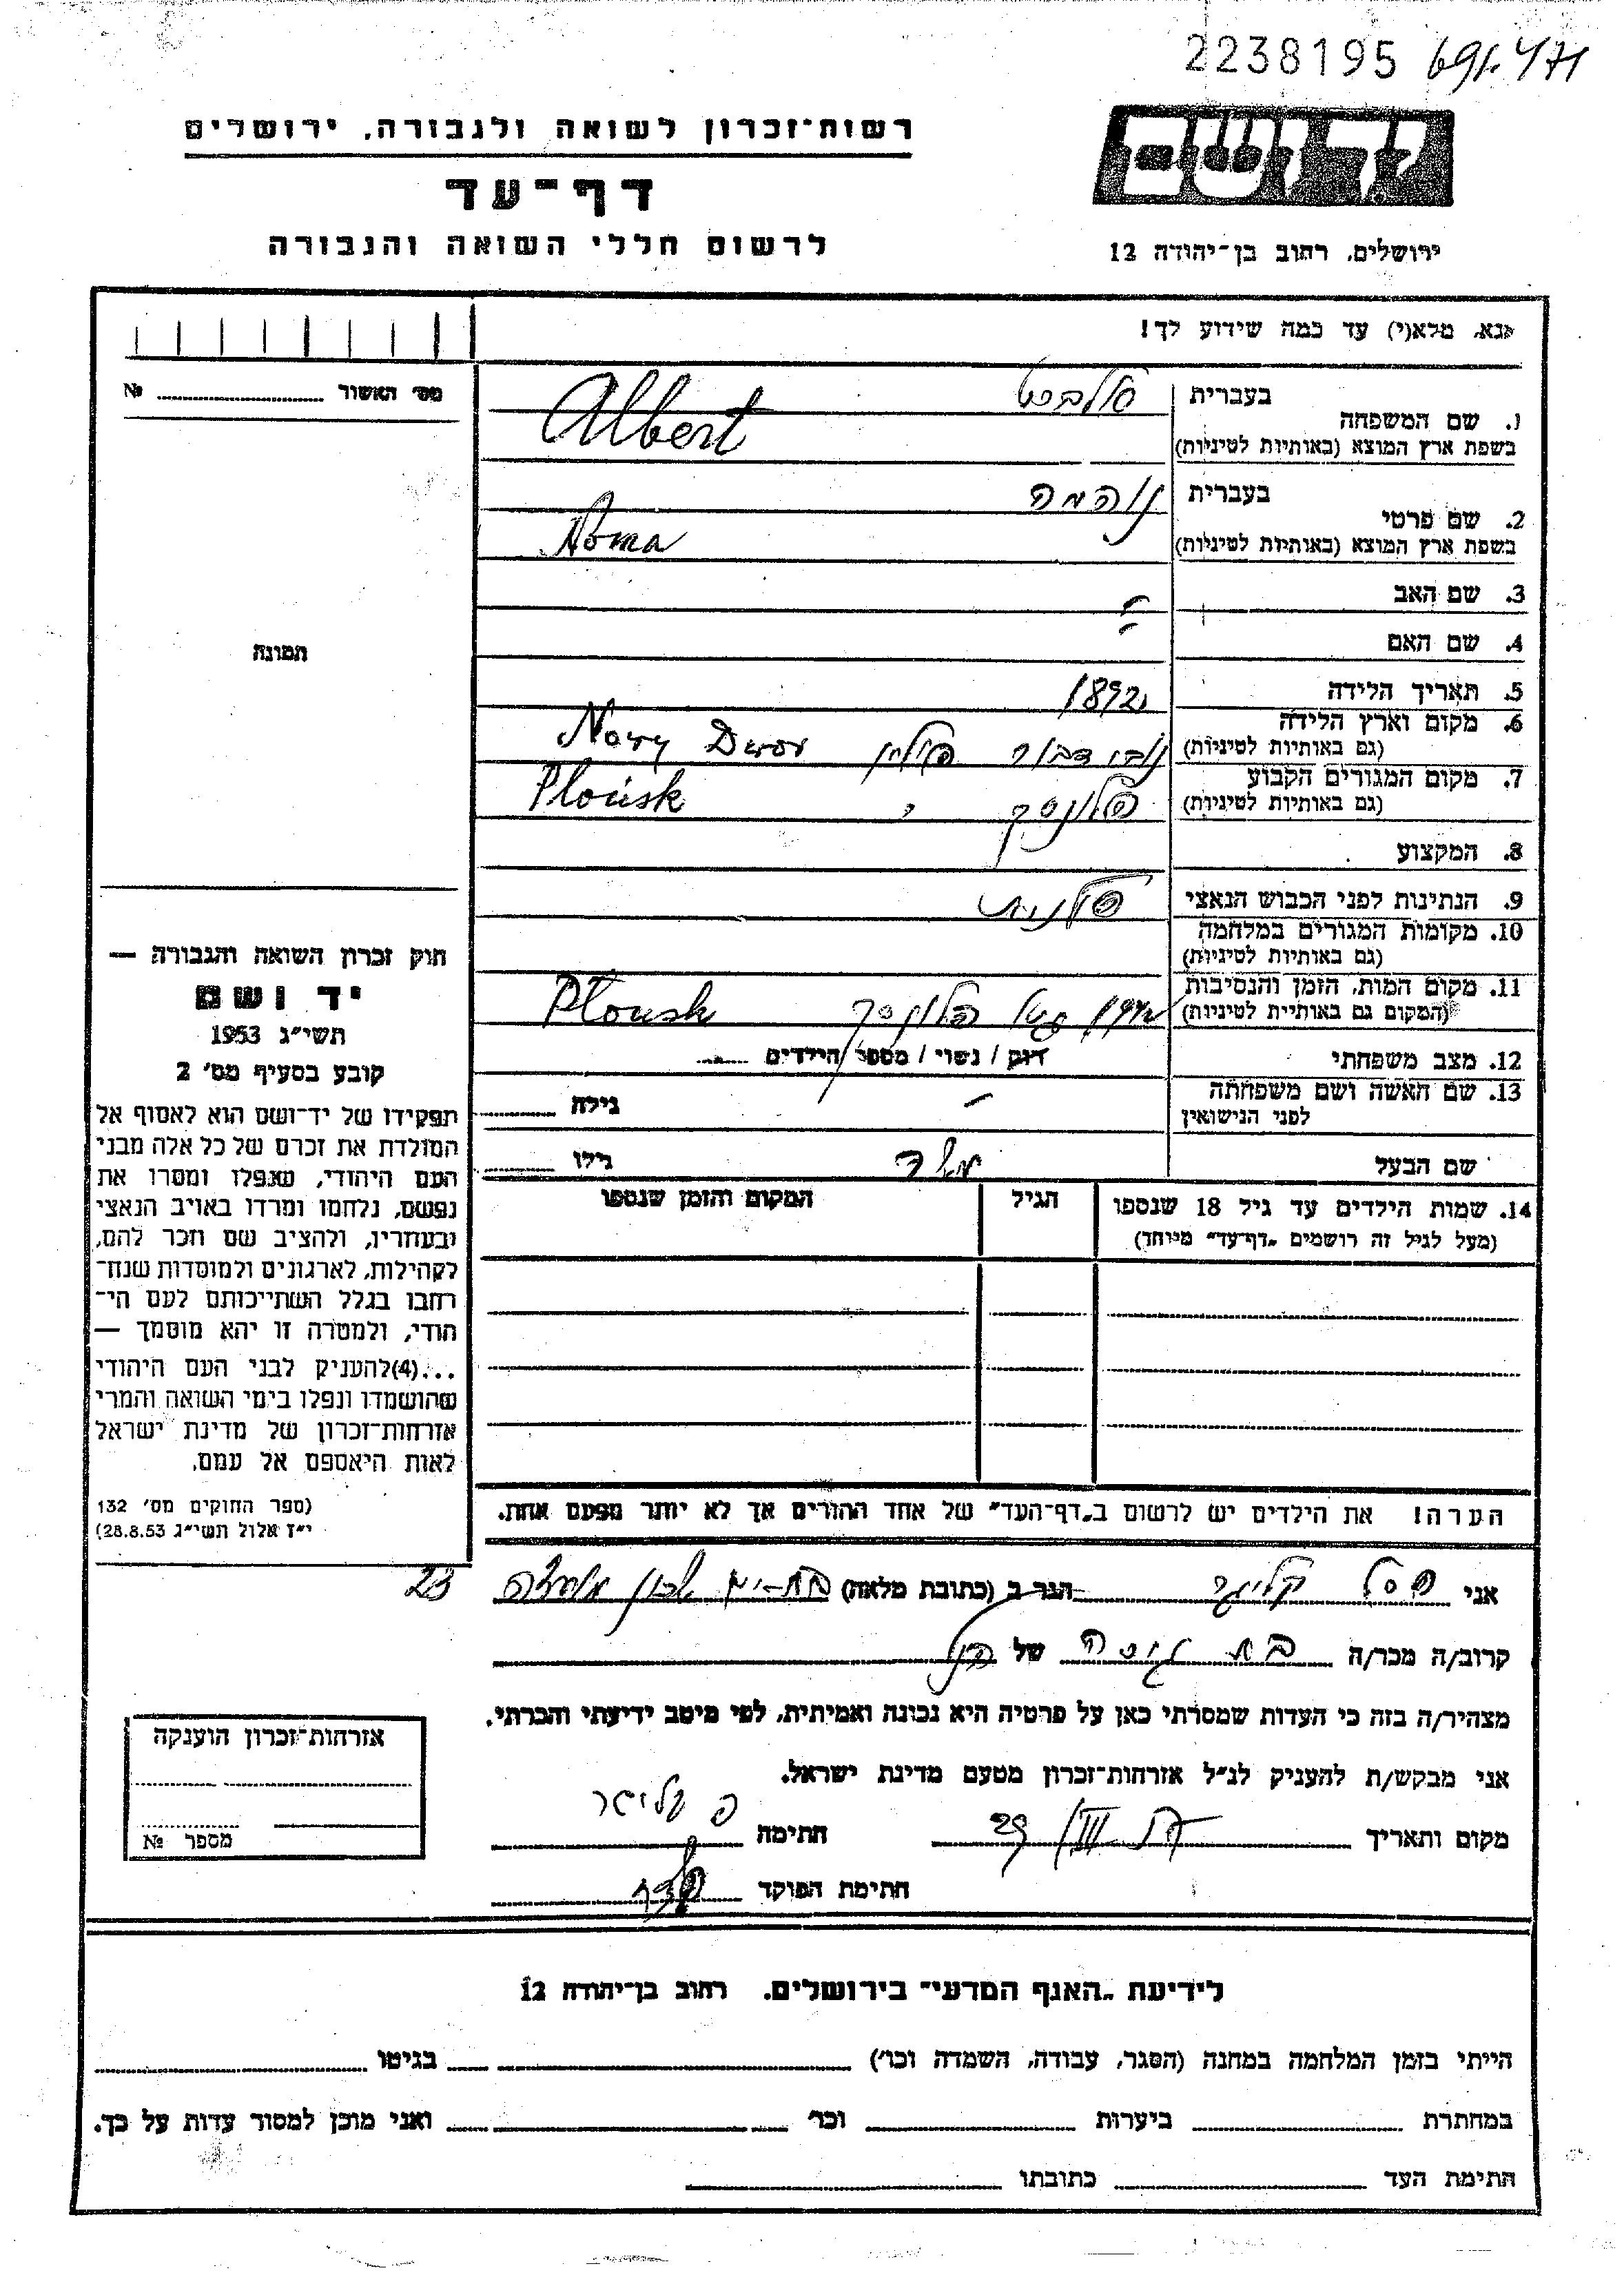 2238195
רשות־זכרון לשואה ולגבורה, ירושלים
דף־עד
לרשום חללי השואה והגבורה
יד ושם
ירושלים, רחוב בן־יהודה 12
נא, מלא(י) עד כמה שידוע לך!
מס׳ האשור № 
1. שם המשפחה
בעברית אלברט
בשפת ארץ המוצא (באותיות לטיניות) Albert
2. שם פרטי
בעברית נוהמה
בשפת ארץ המוצא (באותיות לטיניות) Noma
3. שם האב -
4. שם האם -
תמונה
5. תאריך הלידה 1892
6. מקום וארץ הלידה (גם באותיות לטיניות) נובי דבור פולין Nowy Dwor
7. מקום המגורים הקבוע (גם באותיות לטיניות) פלונסק " Płońsk
8. המקצוע
9. הנתינות לפני הכבוש הנאצי פולנית
10. מקומות המגורים במלחמה (גם באותיות לטיניות)
11. מקום המות, הזמן והנסיבות (המקום גם באותיות לטיניות) גטו פלונסק Płońsk
12. מצב משפחתי רווק / נשוי / מספר הילדים
13. שם האשה ושם משפחתה לפני הנישואין - גילה
שם הבעל גילו
14. שמות הילדים עד גיל 18 שנספו
(מעל לגיל זה רושמים „דף־עד״ מיוחד)
הגיל
המקום והזמן שנספו
חוק זכרון השואה והגבורה —
יד ושם
תשי״ג 1953
קובע בסעיף מס׳ 2
תפקידו של יד־ושם הוא לאסוף אל
המולדת את זכרם של כל אלה מבני
העם היהודי, שנפלו ומסרו את
נפשם, נלחמו ומרדו באויב הנאצי
ובעוזריו, ולהציב שם וזכר להם,
לקהילות, לארגונים ולמוסדות שנח־
רחבו בגלל השתייכותם לעם הי־
הודי, ולמטרה זו יהא מוסמך —
...(4)להעניק לבני העם היהודי
שהושמדו ונפלו בימי השואה והמרי
אזרחות־זכרון של מדינת ישראל
לאות היאספם אל עמם.
(ספר החוקים מס׳ 132
י״ז אלול תשי״ג 28.8.53)
הערה! את הילדים יש לרשום ב„דף־העד״ של אחד ההורים אך לא יותר מפעם אחת.
אני פסל קליגר הגר ב (כתובת מלאה) בת-ים 23
קרוב/ה מכר/ה בת של הנ״ל
מצהיר/ה בזה כי העדות שמסרתי כאן על פרטיה היא נכונה ואמיתית, לפי מיטב ידיעתי והכרתי.
אני מבקש/ת להעניק לנ״ל אזרחות־זכרון מטעם מדינת ישראל.
מקום ותאריך 29/III חתימה פ קליגר
חתימת הפוקד
אזרחות־זכרון הוענקה
מספר №
לידיעת „האגף המדעי״ בירושלים, רחוב בן־יהודה 12
הייתי בזמן המלחמה במחנה (הסגר, עבודה, השמדה וכו׳) בגיטו
במחתרת ביערות וכו׳ ואני מוכן למסור עדות על כך.
חתימת העד כתובתו